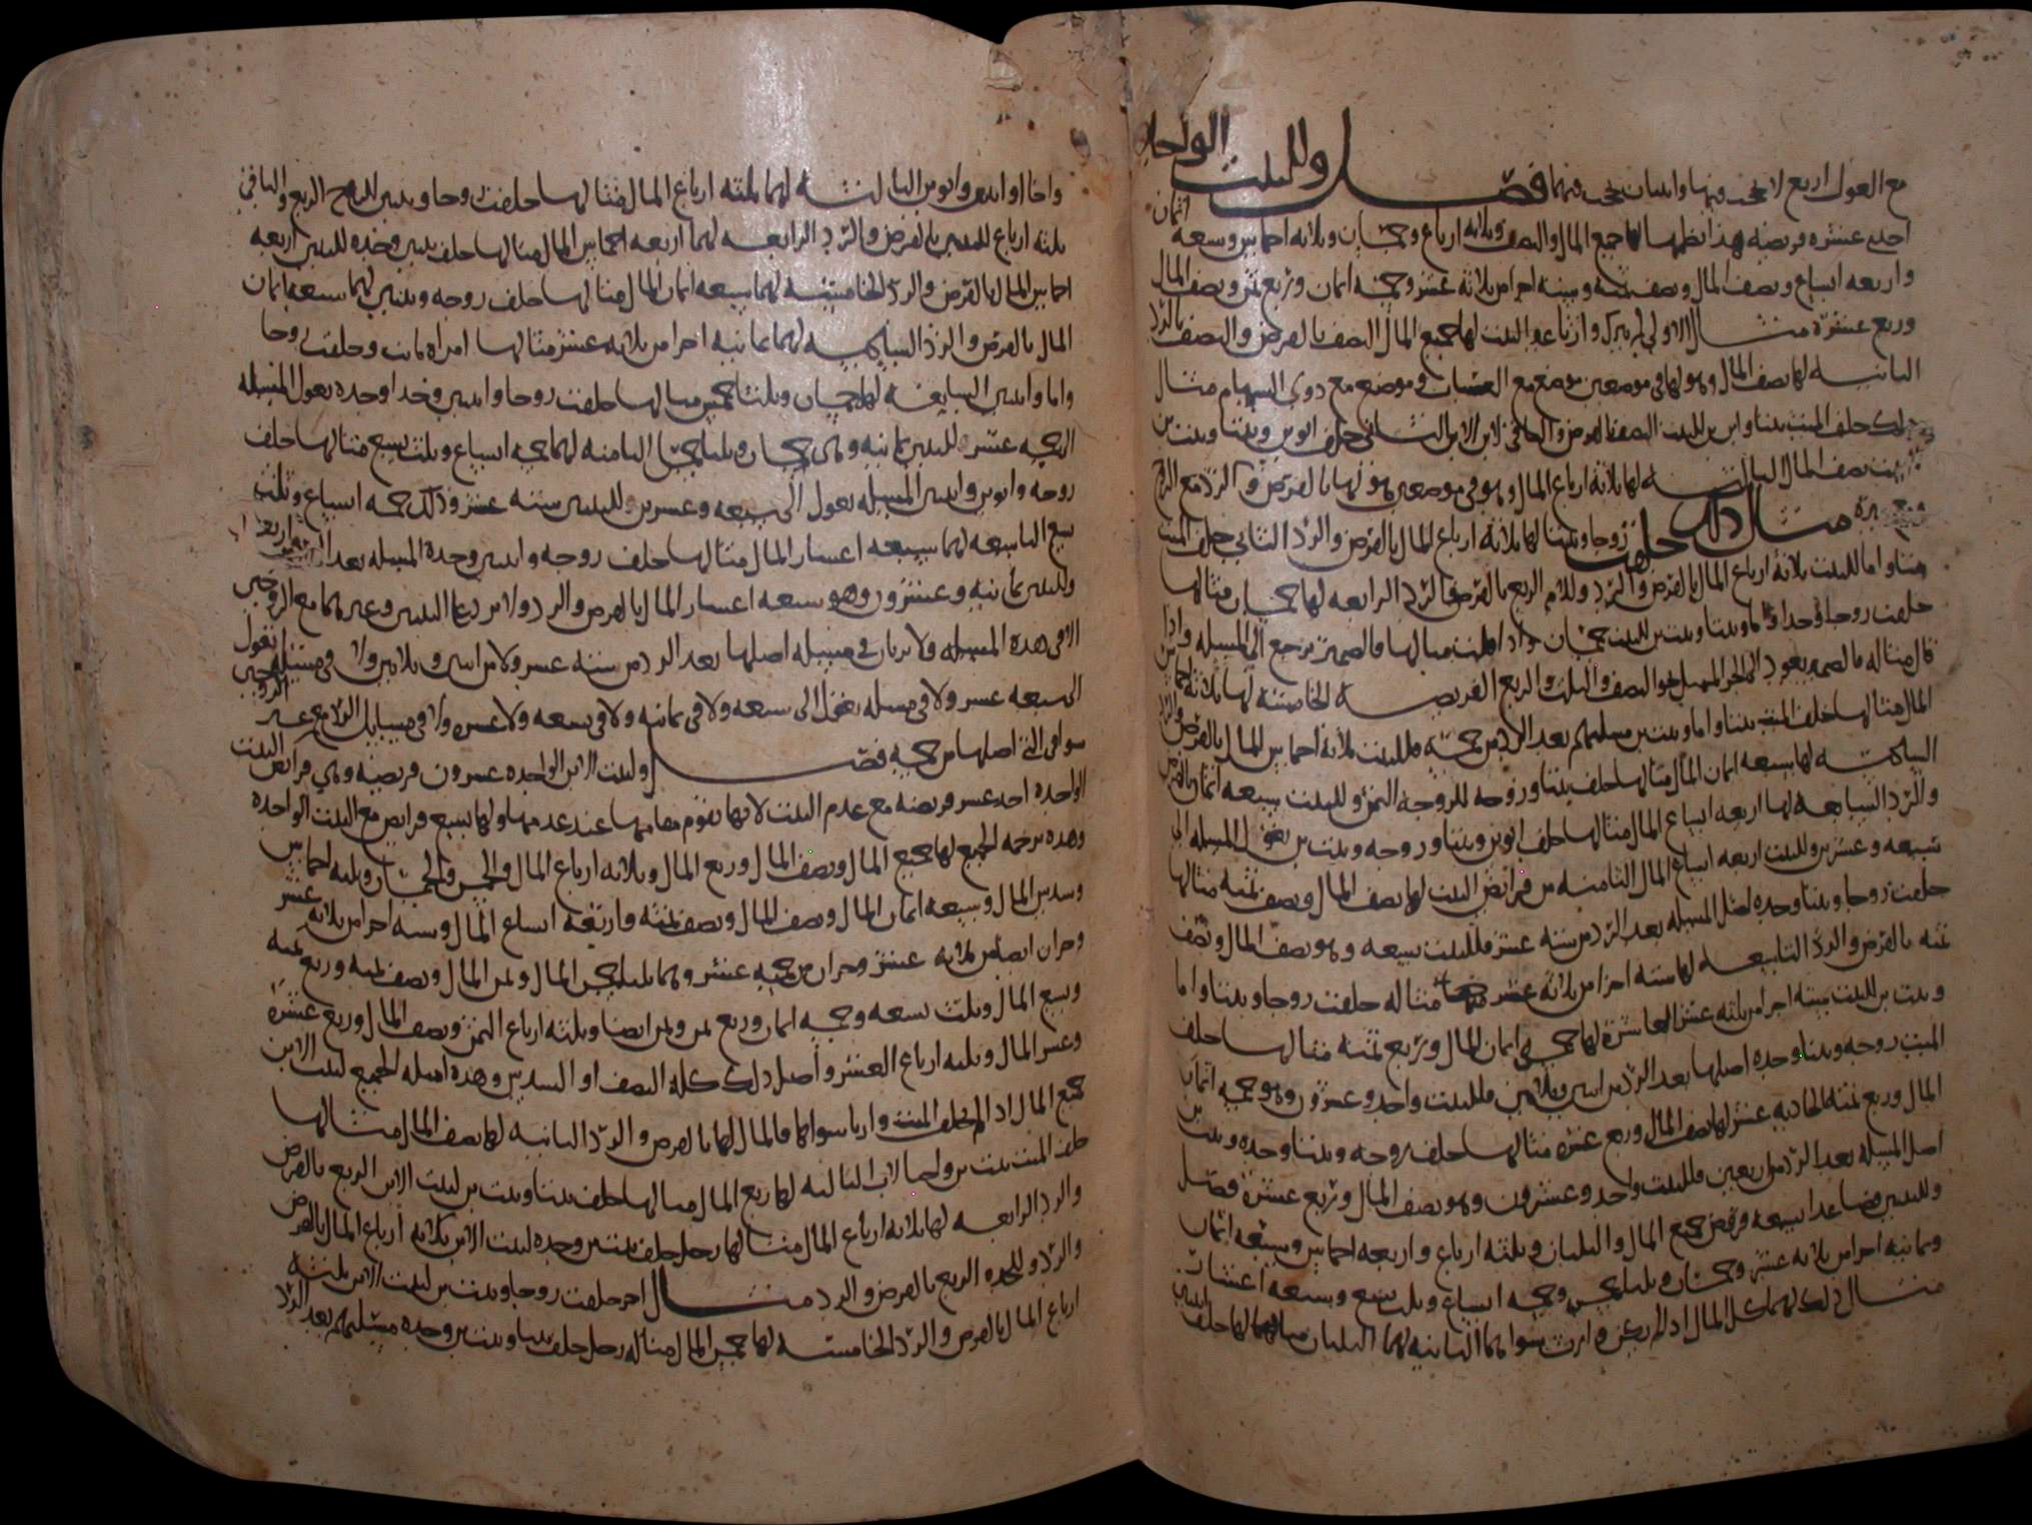 مع العول اربع لا تحجب فيها واثنتان تحجب فيهما فصل وللبنت الواحده
احدى عشره فريضه هذا نظمها لها جميع المال والنصف وثلاثه ارباع وخمسان وثلاثه اخماس وسبعه اثمان
واربعه اسباع ونصف المال ونصف ثمنه وسته اجزا من ثلاثه عشر وخمسه اثمان وربع ثمن ونصف المال
وربع عشره مثال الاولى لم يترك وارثا غير البنت لها جميع المال النصف بالفرض والنصف بالرد
الثانيه لها نصف المال وهو لها في موضعين موضع مع العصبات وموضع مع ذوي السهام مثال
ذلك خلف الميت بنتا وابن ابن للبنت النصف بالفرض والباقي لابن الابن الثاني خلف ابوين وبنتا وبنت ابن
للبنت نصف المال الثالثه لها ثلاثه ارباع المال وهو في موضعين هو لها بالفرض والرد مع الزوج
مثال ذلك خلفت زوجا وبنتا لها ثلاثه ارباع المال بالفرض والرد الثاني خلف الميت
بنتا واما للبنت ثلاثه ارباع المال بالفرض والرد وللام الربع بالفرض والرد الرابعه لها خمسان مثالها
خلفت زوجا وجدا واما وبنتا وبنت ابن للبنت خمسان واذا قلت مثالها فالضمير يرجع الى المسئله واذا
قال مثاله فالضمير يعود الى الجزء المسهل نحو النصف والثلث والربع الفريضه الخامسه لها ثلاثه اخماس
المال مثالها خلف الميت بنتا واما وبنت ابن مسئلتهم بعد الرد من خمسه فللبنت ثلاثه اخماس المال بالفرض والرد
السادسه لها سبعه اثمان المال مثالها خلف بنتا وزوجه للزوجه الثمن وللبنت سبعه اثمان بالفرض
والرد السابعه لها اربعه اسباع المال مثالها خلف ابوين وبنتا وزوجه وبنت ابن تعول المسئله الى
سبعه وعشرين وللبنت اربعه اسباع المال الثامنه من فرائض البنت لها نصف المال ونصف ثمنه مثالها
خلفت زوجا وبنتا وجده اصل المسئله بعد الرد من سته عشر فللبنت تسعه وهو نصف المال ونصف
ثمنه بالفرض والرد التاسعه لها سته اجزا من ثلاثه عشر مثاله خلفت زوجا وبنتا واما
وبنت ابن للبنت سته اجزا من ثلثه عشر العاشرة لها خمسه اثمان المال وربع ثمنه مثالها خلف
الميت زوجه وبنتا وجده اصلها بعد الرد من اثنين وثلاثين فللبنت واحد وعشرون وهو خمسه اثمان
المال وربع ثمنه الحاديه عشر لها نصف المال وربع عشره مثالها خلف زوجه وبنتا وجده وبنت ابن
اصل المسئله بعد الرد من اربعين فللبنت واحد وعشرون وهو نصف المال وربع عشره فصل
وللبنتين فصاعدا تسعه فروض جميع المال والثلثان وثلثه ارباع واربعه اخماس وسبعه اثمان
وثمانيه اجزا من ثلاثه عشر وخمسان وثلثا خمس وخمسه اسباع وثلث سبع وسبعه اعشار
مثال ذلك لهما كل المال اذا لم يكن وارث سواهما الثانيه لهما الثلثان مثالها خلف ابنتين
واخا او ابنتين وابوين الثالثه لهما ثلثه ارباع المال مثالها خلفت زوجا وبنتين للزوج الربع والباقي
ثلثه ارباع للبنتين بالفرض والرد الرابعه لهما اربعه اخماس المال مثالها خلف بنتين وجده للبنتين اربعه
اخماس المال بالفرض والرد الخامسه لهما سبعه اثمان المال مثالها خلف زوجه وبنتين لهما سبعه اثمان
المال بالفرض والرد السادسه لهما ثمانيه اجزا من ثلاثه عشر مثالها امراه ماتت وخلفت زوجا
واما وابنتين السابعه لهما خمسان وثلثا خمس مثالها خلفت زوجا وابنتين وجدا وجده تعول المسئله
الى خمسه عشر للبنتين ثمانيه وهي خمسان وثلثا خمس الثامنه لهما خمسه اسباع وثلث سبع مثالها خلف
زوجه وابوين وابنتين المسئله تعول الى سبعه وعشرين للبنتين سته عشر وذلك خمسه اسباع وثلث
سبع التاسعه لهما سبعه اعشار المال مثالها خلف زوجه وابنتين وجدة المسئله بعد الرد من اربعين
وللبنتين ثمانيه وعشرون وهو سبعه اعشار المال بالفرض والرد ولا يرد على البنتين وغيرهما مع الزوجين
الا في هذه المسئله ولا يرثان في مسئله اصلها بعد الرد من سته عشر ولا من اثنين وثلاثين ولا في مسئله تعول
الى سبعه عشر ولا في مسئله تعول الى سبعه ولا في ثمانيه ولا في تسعه ولا عشره ولا في مسايل الرد مع غير الزوجين
سوا في التي اصلها من خمسه فصل ولبنت الابن الواحده عشرون فريضه وهي فرائض البنت
الواحده احد عشر فريضه مع عدم البنت لانها تقوم مقامها عند عدمها ولها تسع فرايض مع البنت الواحده
وهذه ترجمه الجميع لها جميع المال ونصف المال وربع المال وثلاثه ارباع المال والخمس والخمسان وثلثه اخماس
وسدس المال وسبعه اثمان المال ونصف المال ونصف ثمنه واربعه اسباع المال وسته اجزا من ثلاثه عشر
وجزان ايضا من ثلاثه عشر وجزان من خمسه عشر وهما ثلثا خمس المال وثمن المال ونصف ثمنه وربع ثمنه
وسبع المال وثلث سبعه وخمسه اثمان وربع ثمن وثمن ايضا وثلثه ارباع الثمن ونصف المال وربع عشره
وعشر المال وثلثه ارباع العشر واصل ذلك كله النصف او السدس وهذه امثله الجميع لبنت الابن
جميع المال اذا لم يخلف الميت وارثا سواها فالمال لها بالفرض والرد الثانيه لها نصف المال مثالها
خلف الميت بنت ابن واخا لاب الثالثه لها ربع المال مثالها خلف بنتا وبنت ابن لبنت الابن الربع بالفرض
والرد الرابعه لها ثلاثه ارباع المال مثالها رجل خلف بنت ابن وجده لبنت الابن ثلاثه ارباع المال بالفرض
والرد وللجده الربع بالفرض والرد مثال اخر خلفت زوجا وبنت ابن لبنت الابن ثلثه
ارباع المال بالفرض والرد الخامسه لها خمس المال مثاله رجل خلف بنتا وبنت ابن وجده مسئلتهم بعد الرد